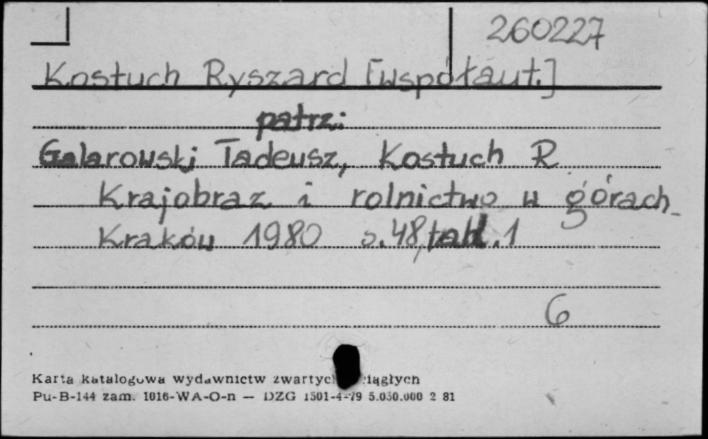 260227
Kostuch Ryszard [współaut.]
patrz:
Galarowski Tadeusz, Kostuch R
Krajobraz i rolnictwo w górach
Kraków 1980 s.48, tabl.1
6
Karta katalogowa wydawnictw zwartych ciągłych
Pu-B-144 zam. 1016-WA-O-n — DZG 1501-4-79 5.050.000 2 81